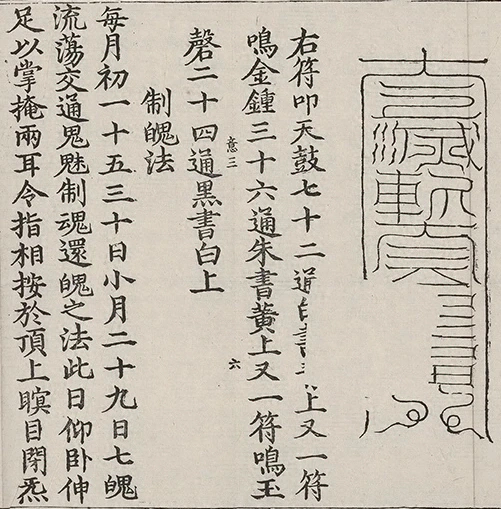 右符叩天鼓七十二通白書上又一符
鳴金鍾三十六通朱書黃上又一符鳴玉
意三 六
磬二十四通黑書白上
制魄法
每月初一十五三十日小月二十九日七魄
流蕩交通鬼魅制魂還魄之法此日仰卧伸
足以掌掩兩耳令指相按於頂上瞑目閉炁